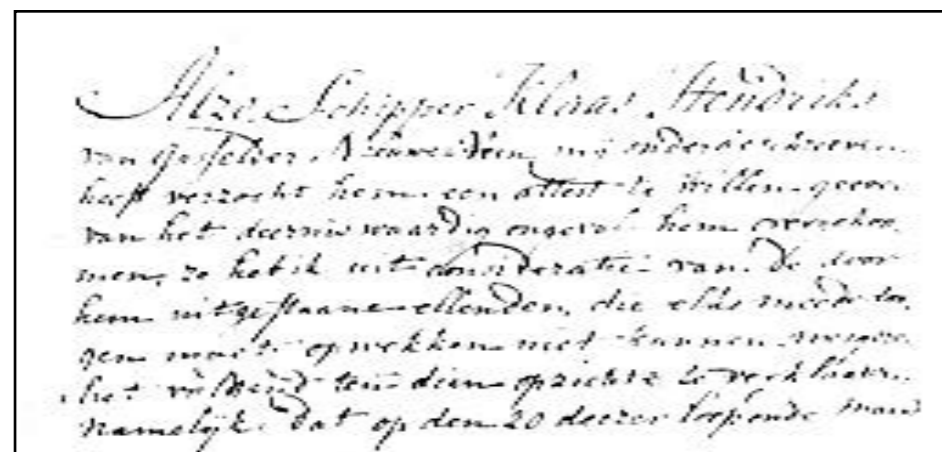 Alzo Schipper Klaas Hendriks
van Gasselter Nieuweveen, mij ondergeschreeven
heeft verzocht hem een attest te willen geeven
van het deerniswaardig ongeval hem overkoo
men, zo heb ik uit consideratie van de door
hem uitgestaane ellenden, die elks meedelo
gen moet opwekken niet kunnen
het ten dien opzichte te verklaaren
namelijk dat op den 20 deezer loopende maand